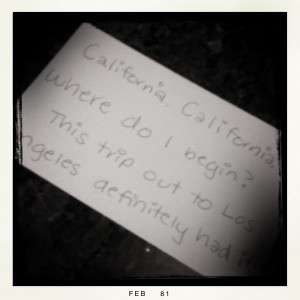 California, California.
Where do I begin?
This trip out to Los
ngeles definitely had
FEB 81